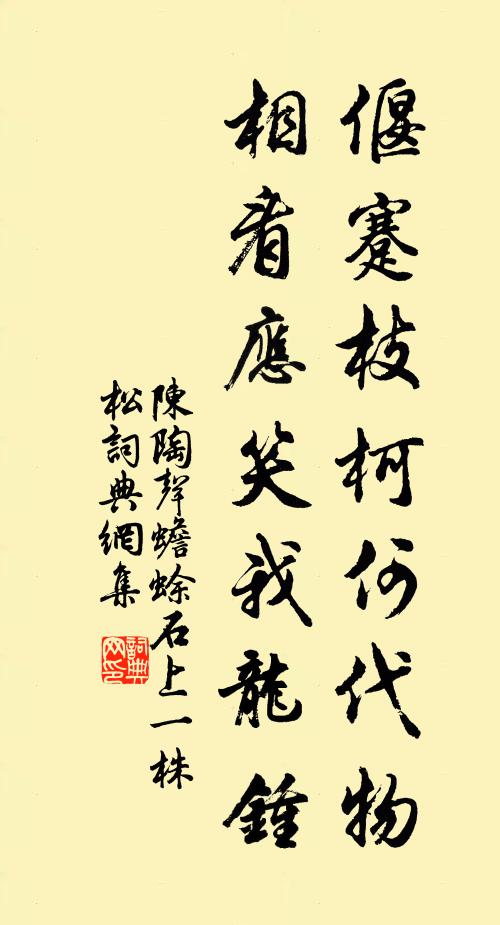 偃蹇枝柯何代物
相看應笑我龍鍾
陳陶聲蟾蜍石上一株
松詞典網集
詞典
网印